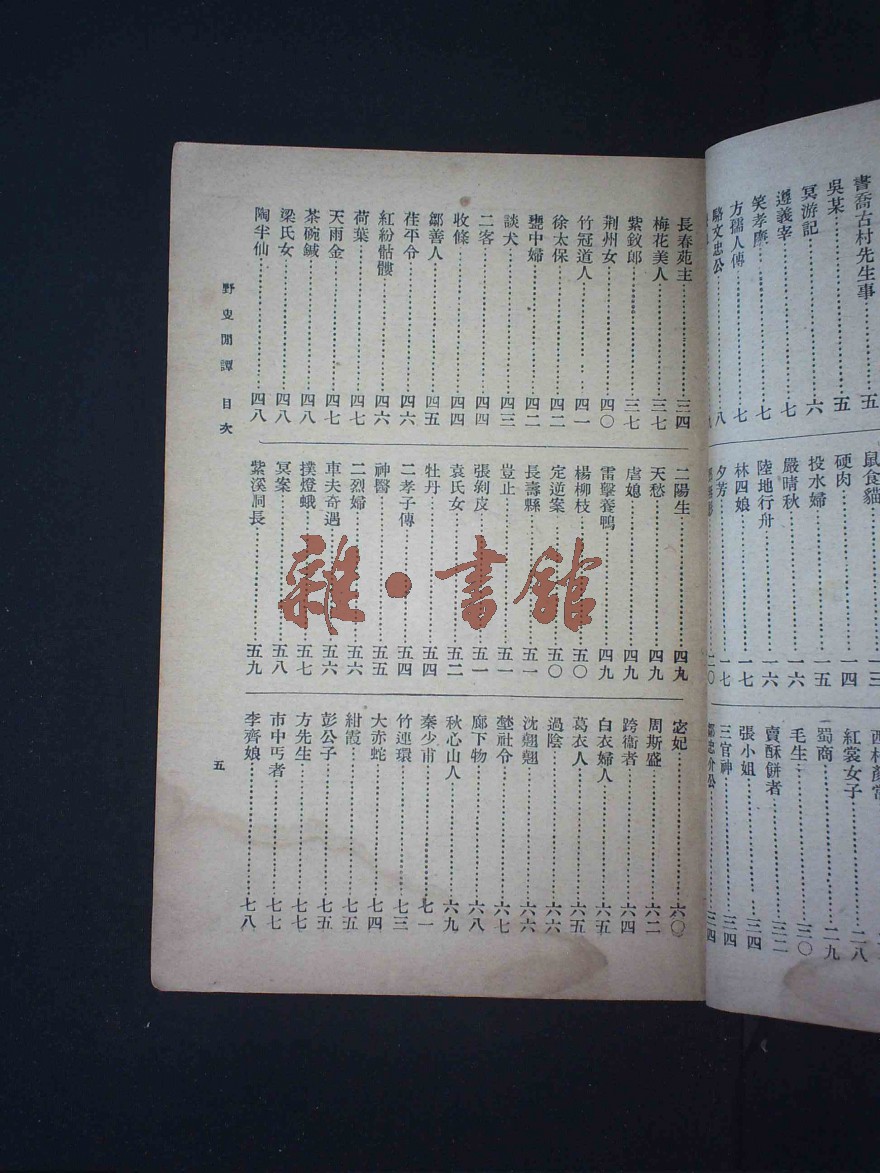 書喬古村先生事……五
吳某……五
冥游記……六
遵義宰……七
笑孝廉……七
方孺人傳……七
駱文忠公……八
鼠食貓……一三
硬肉……一四
投水婦……一五
嚴晴秋……一六
陸地行舟……一六
林四娘……一七
夕芳……一七
二〇
紅裳女子……二八
蜀商……二九
毛生……三〇
賣酥餅者……三二
張小姐……三四
三官神……三四
三四
長春苑主……三四
梅花美人……三七
紫釵郎……三七
荆州女……四〇
竹冠道人……四一
徐太保……四二
甕中婦……四二
談犬……四三
二客……四四
收條……四四
鄒善人……四五
茌平令……四六
紅粉骷髏……四六
荷葉……四七
天雨金……四七
茶碗鍼……四八
梁氏女……四八
陶半仙……四八
二陽生……四九
天愁……四九
虐媳……四九
雷擊養鴨……四九
楊柳枝……五〇
定逆案……五〇
長壽縣……五一
豈止……五一
張剝皮……五一
袁氏女……五二
牡丹……五四
二孝子傳……五四
神醫……五五
二烈婦……五六
車夫奇遇……五六
撲燈蛾……五七
冥案……五八
紫溪洞長……五九
宓妃……六〇
周斯盛……六二
跨衞者……六四
白衣婦人……六五
葛衣人……六五
過陰……六六
沈翹翹……六六
埜社令……六七
廊下物……六八
秋心山人……六九
秦少甫……七一
竹連環……七三
大赤蛇……七四
紺霞……七五
彭公子……七五
方先生……七七
市中丐者……七七
李齊娘……七八
野叟閒譚 目次
五
雜·書館